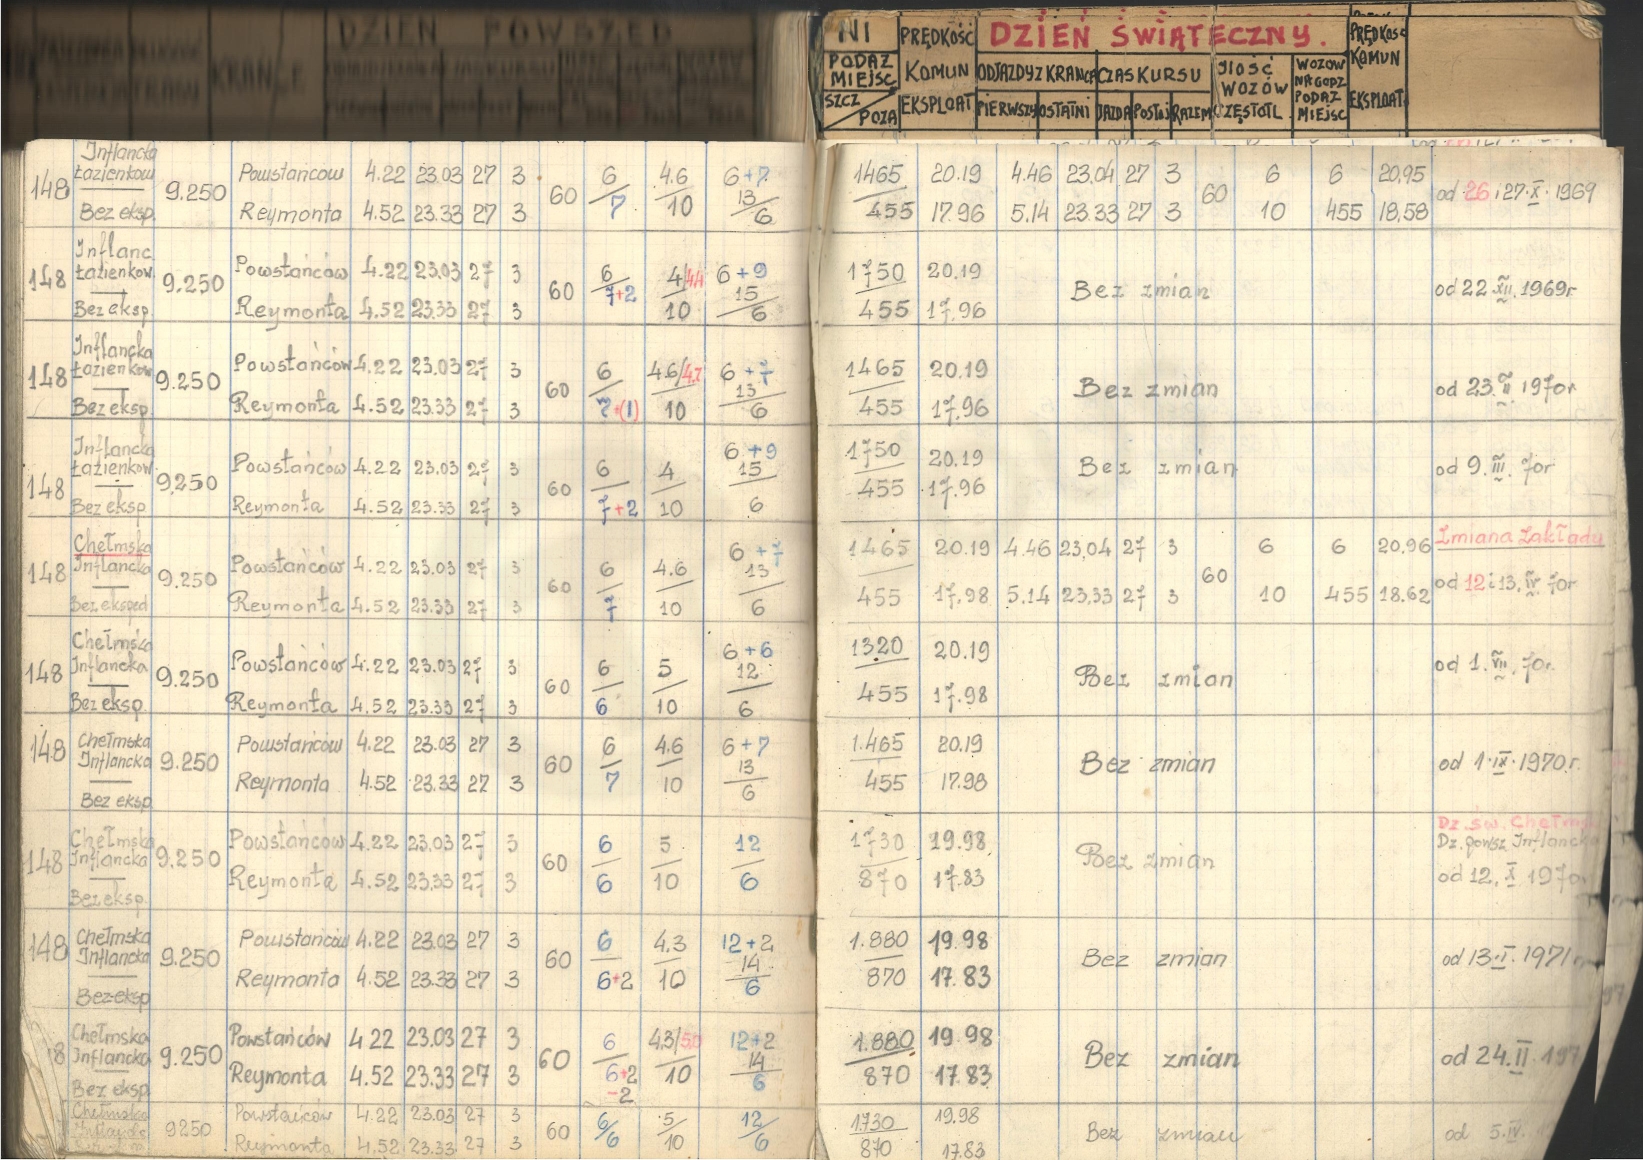 DZIEŃ POWSZED
KRAŃCE
NI PRĘDKOŚĆ DZIEŃ ŚWIĄTECZNY. PRĘDKOŚĆ
PODAŻ MIEJSC KOMUN ODJAZDY Z KRAŃCA CZAS KURSU ILOŚĆ WOZÓW WOZÓW NA GODZ KOMUN
SZCZ / POZA EKSPLOAT PIERWSZY OSTATNI JAZDA POSTÓJ RAZEM CZĘSTOTL PODAŻ MIEJSC EKSPLOAT
Inflancka
148 Łazienkow 9.250 Powstańców 4.22 23.03 27 3 60 6 4.6 6+7 1465 20.19 4.46 23.04 27 3 60 6 6 20,95 od 26 i 27.X.1969
13
Bez eksp. Reymonta 4.52 23.33 27 3 7 10 6 455 17.96 5.14 23.33 27 3 10 455 18,58
Inflanc
148 Łazienkow 9.250 Powstańców 4.22 23.03 27 3 60 6 4/44 6+9 1750 20.19 Bez zmian od 22.XII.1969r
15
Bez eksp. Reymonta 4.52 23.33 27 3 7+2 10 6 455 17.96
Inflancka
148 Łazienkow 9.250 Powstańców 4.22 23.03 27 3 60 6 4.6/4.7 6+7 1465 20.19 Bez zmian od 23.II.1970r
13
Bez eksp. Reymonta 4.52 23.33 27 3 7+(1) 10 6 455 17.96
Inflancka
148 Łazienkow 9.250 Powstańców 4.22 23.03 27 3 60 6 4 6+9 1750 20.19 Bez zmian od 9.III.70r
15
Bez eksp Reymonta 4.52 23.33 27 3 7+2 10 6 455 17.96
Chełmska Zmiana Zakładu
148 Inflancka 9.250 Powstańców 4.22 23.03 27 3 60 6 4.6 6+7 1465 20.19 4.46 23,04 27 3 60 6 6 20.96 od 12 i 13.IV.70r
13
Bez eksped Reymonta 4.52 23.33 27 3 7 10 6 455 17.98 5.14 23,33 27 3 10 455 18.62
Chełmska
148 Inflancka 9.250 Powstańców 4.22 23.03 27 3 60 6 5 6+6 1320 20.19 Bez zmian od 1.VII.70r.
12
Bez eksp. Reymonta 4.52 23.33 27 3 6 10 6 455 17.98
Chełmska
148 Inflancka 9.250 Powstańców 4.22 23.03 27 3 60 6 4.6 6+7 1.465 20.19 Bez zmian od 1.IX.1970.r.
13
Bez eksp. Reymonta 4.52 23.33 27 3 7 10 6 455 17.98
Chełmska Dz. św. Chełms
148 Inflancka 9.250 Powstańców 4.22 23.03 27 3 60 6 5 12 1730 19.98 Bez zmian Dz. powsz Inflanck
Bez eksp. Reymonta 4.52 23.33 27 3 6 10 6 870 17.83 od 12.X.1970r
Chełmska
148 Inflancka 9.250 Powstańców 4.22 23.03 27 3 60 6 4.3 12+2 1.880 19.98 Bez zmian od 13.I.1971
14
Bez eksp Reymonta 4.52 23.33 27 3 6+2 10 6 870 17.83
Chełmska
8 Inflancka 9.250 Powstańców 4 22 23.03 27 3 60 6 4,3/5,0 12+2 1.880 19.98 Bez zmian od 24.II.197
14
Bez eksp. Reymonta 4.52 23.33 27 3 6+2 10 6 870 17.83
-2
Chełmska Powstańców 4.22 23.03 27 3 6 5 12 1730 19.98
9250 60 Bez zmian od 5.IV.
Reymonta 4.52 23.33 27 3 6 10 6 870 17.83